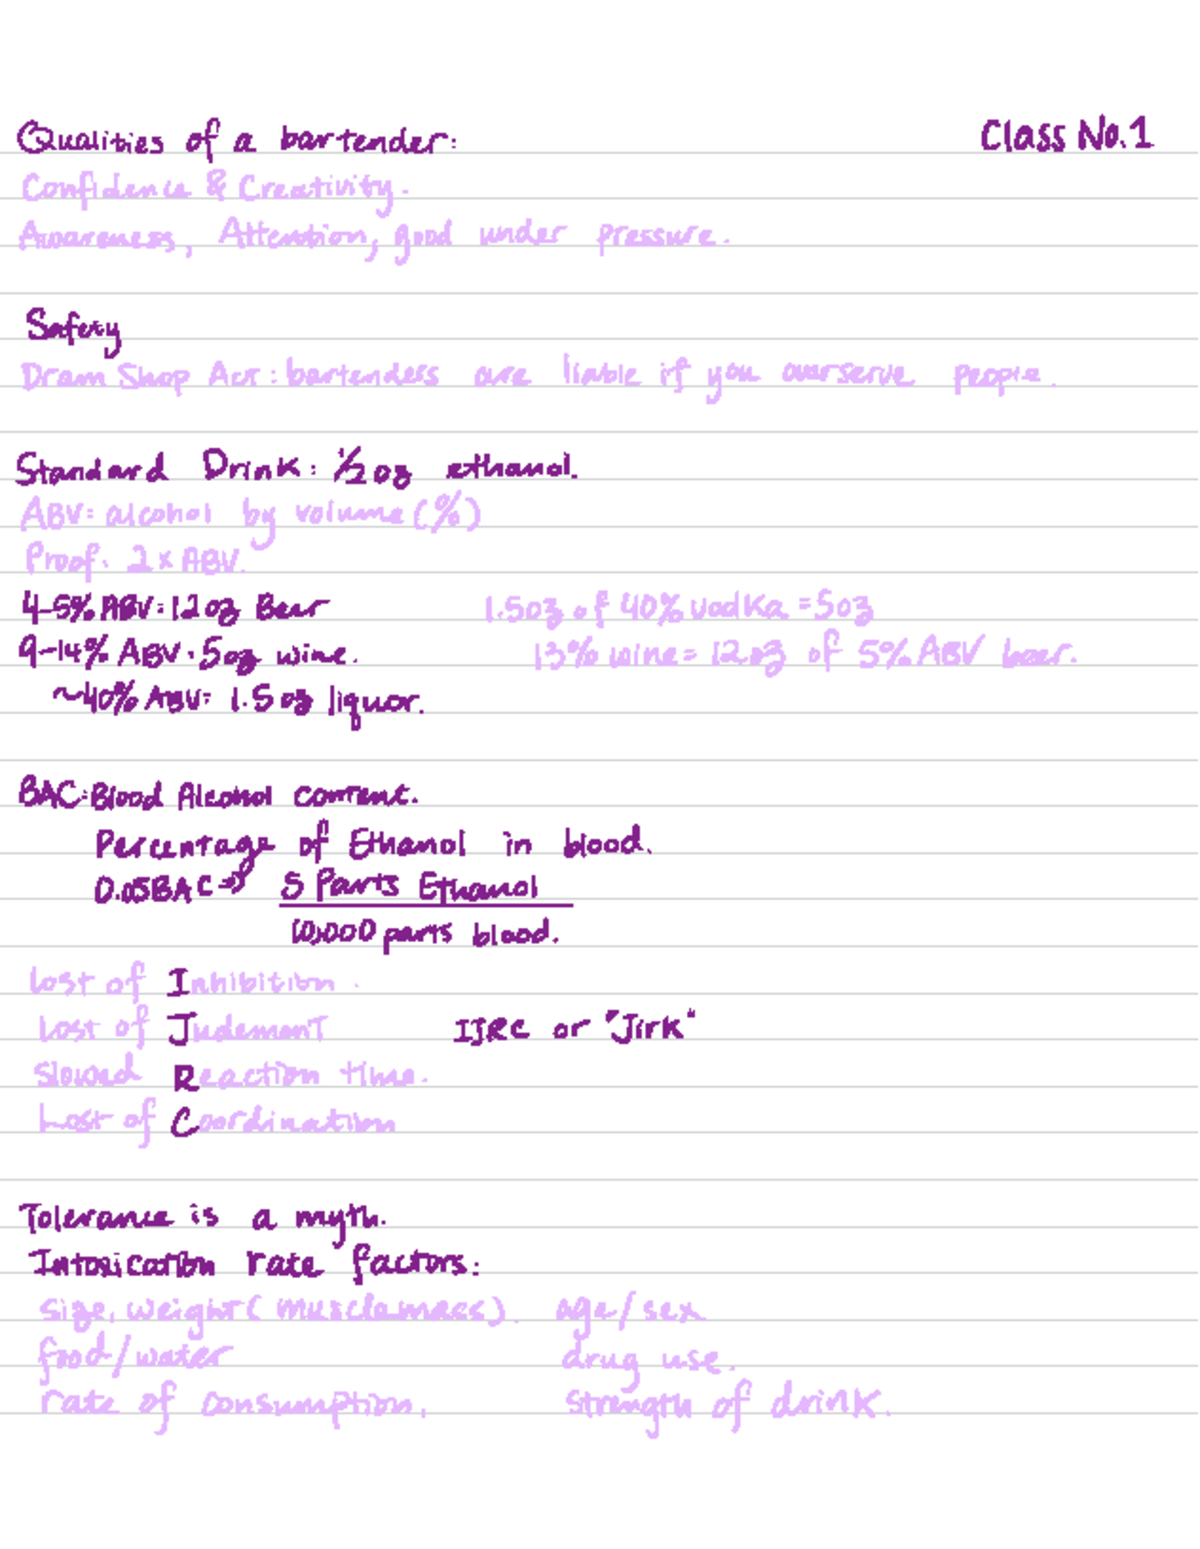 Class No.1
Qualities of a bartender:
Confidence & Creativity.
Awareness, Attention, good under pressure.
Safety
Dram Shop Act: bartenders are liable if you overserve people.
Standard Drink: 1/2 oz ethanol.
ABV: alcohol by volume (%)
Proof: 2 x ABV.
4-5% ABV: 12oz Beer
1.5oz of 40% vodka = 5oz
9-14% ABV: 5oz wine.
13% wine = 12oz of 5% ABV beer.
~40% ABV: 1.5oz liquor.
BAC: Blood Alcohol content.
Percentage of Ethanol in blood.
0.05BAC => 5 Parts Ethanol
10,000 parts blood.
Lost of Inhibition.
Lost of Judement
IJRC or "Jirk"
Slowed Reaction time.
Lost of Coordination
Tolerance is a myth.
Intoxication rate factors:
Size, weight (musclemass). age/sex
food/water drug use.
rate of consumption. Strength of drink.